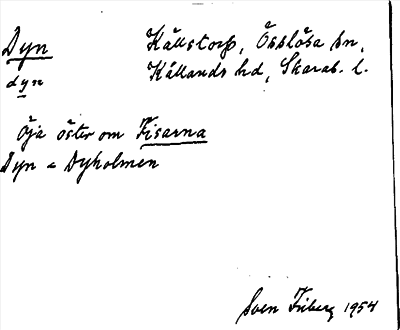 Dyn
Källstorp, Össlösa sn,
dyn
Kållands hd, Skarab. l.
Öja öster om Fisarna
Dyn = Dyholmen
Sven Friberg 1954